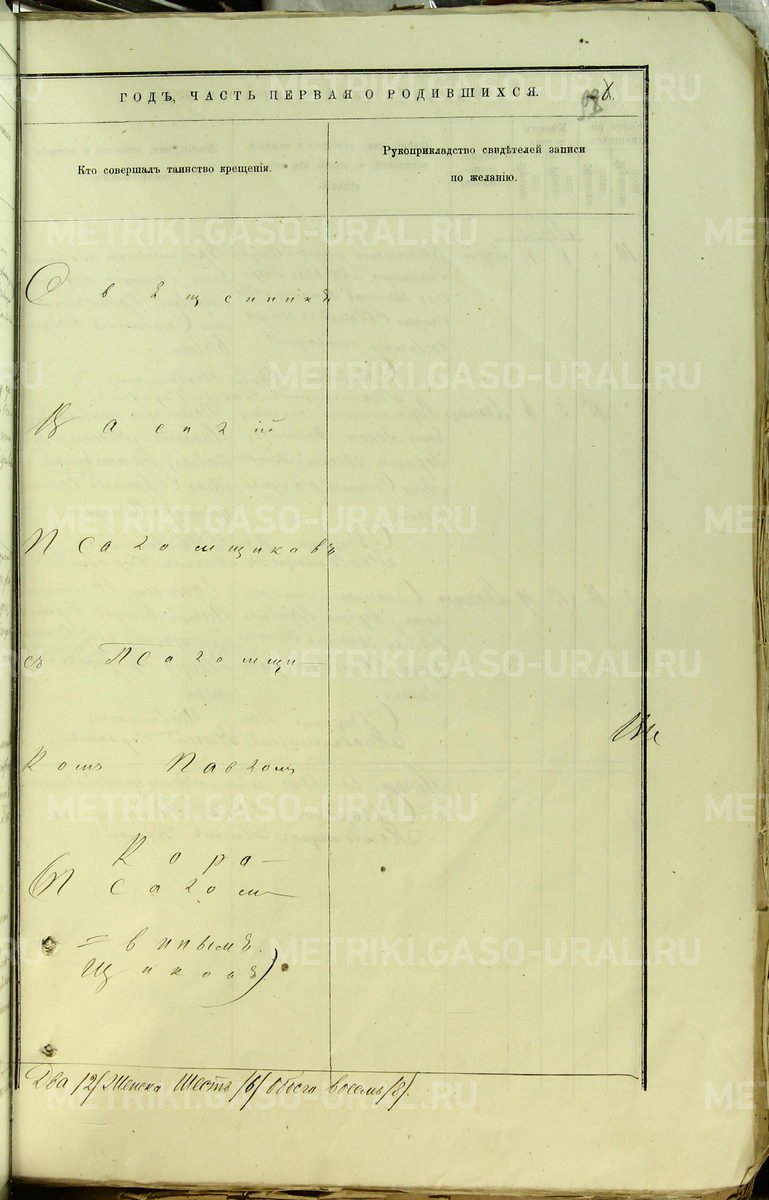 ГОДЪ, ЧАСТЬ ПЕРВАЯ О РОДИВШИХСЯ.
Кто совершалъ таинство крещенія.
Рукоприкладство свидѣтелей записи
по желанію.
Священникъ
Василій
Псаломщиковъ
съ Псаломщи-
комъ Павлом
Кора-
(Псалом-
= винымъ.
щикомъ)
Два /2/ Женска Шесть /6/ Обоего восемь /8/.
METRIKI.GASO-URAL.RU